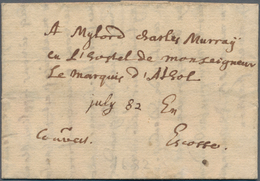 A Mylord Charles Murray
en L'hostel de monseigneur
Le marquis d'Athol
july 82 En
Escosse